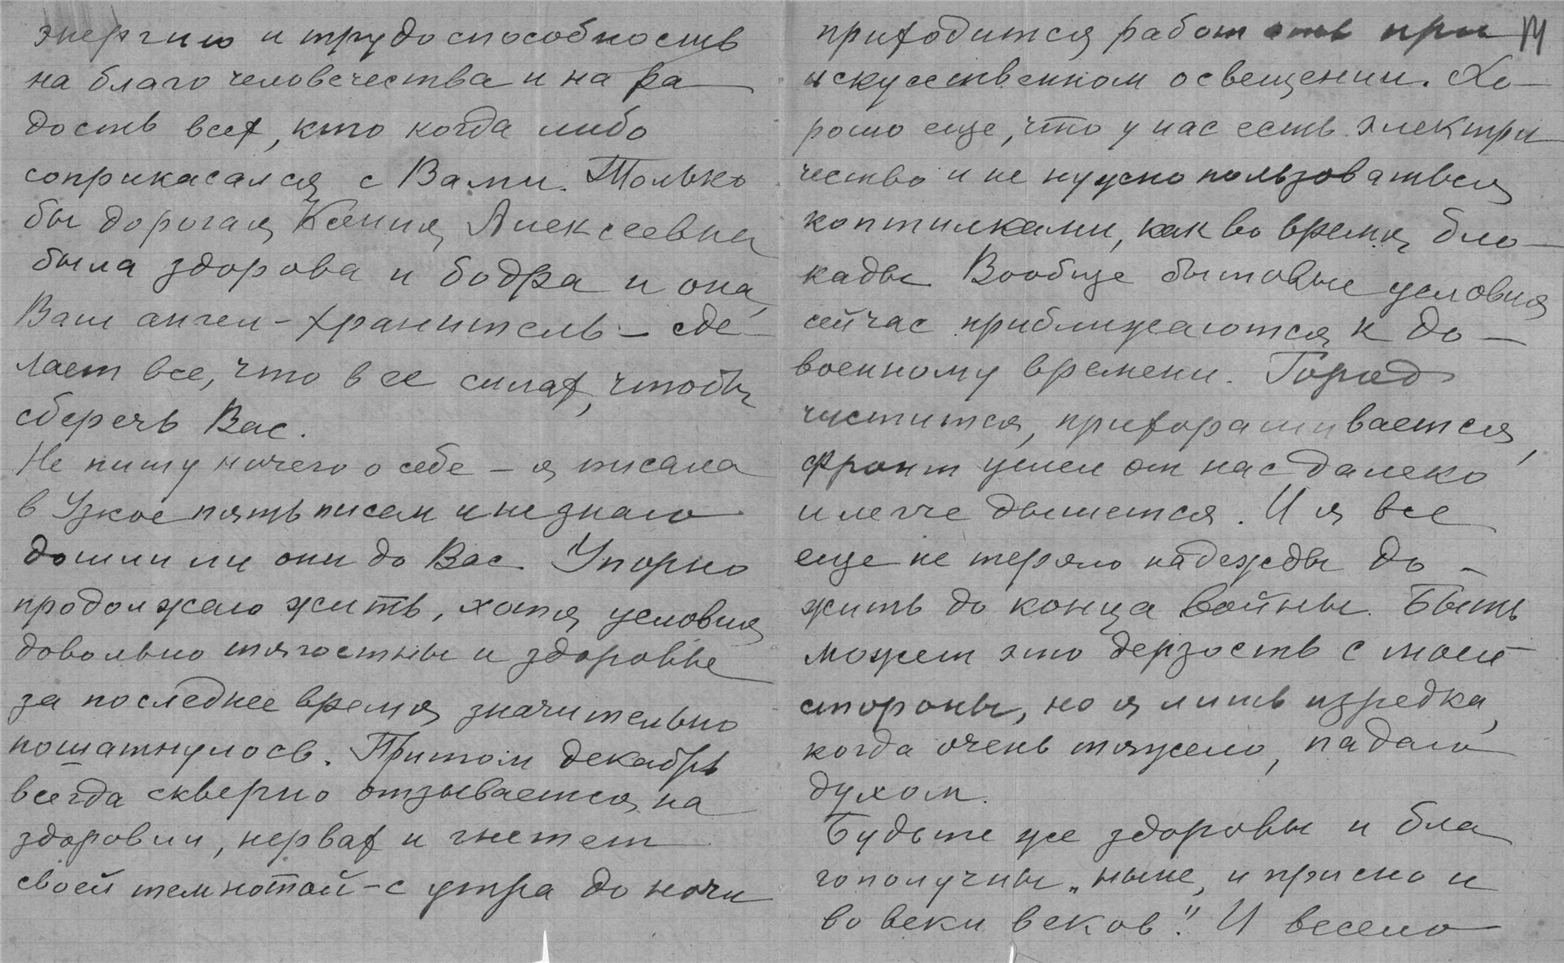 энергию и трудоспособность
на благо человечества и на ра
дость всех, кто когда либо
соприкасался с Вами. Только
бы дорогая Ксения Алексеевна
была здорова и бодра и она,
Ваш ангел-хранитель – сде-
лает все, что в ее силах, чтобы
сберечь Вас.
Не пишу ничего о себе – я писала
в Узкое пять писем и не знаю
дошли ли они до Вас. Упорно
продолжаю жить, хотя условия
довольно тягостны и здоровье
за последнее время значительно
пошатнулось. Притом декабрь
всегда скверно отзывается на
здоровии, нервах и гнетет
своей темнотой – с утра до ночи
приходится работать при
искусственном освещении. Хо-
рошо еще, что у нас есть электри
чество и не нужно пользоваться
коптилками, как во время бло-
кады. Вообще бытовые условия
сейчас приближаются к до-
военному времени. Город
чистится, прихорашивается,
фронт ушел от нас далеко
и легче дышется. И я все
еще не теряю надежды до-
жить до конца войны. Быть
может это дерзость с моей
стороны, но я лишь изредка,
когда очень тяжело, падаю
духом.
Будьте же здоровы и бла
гополучны „ныне, и присно и
во веки веков". И весело